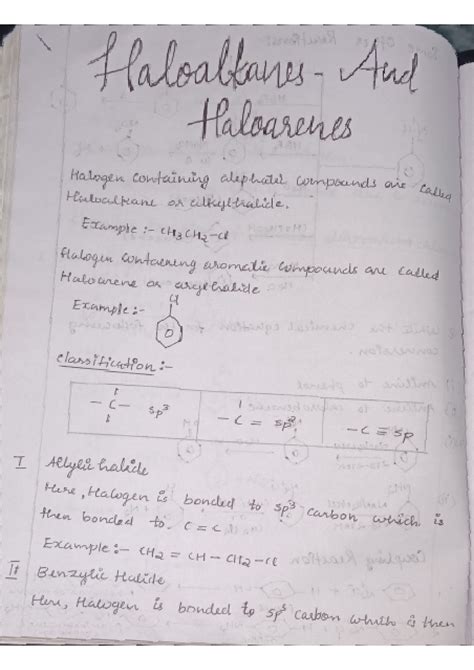 Haloalkanes - And
Haloarenes
Halogen containing alephatic compounds are called
Haloalkane or alkylhalide.
Example :- CH3CH2-Cl
Halogen containing aromatic compounds are called
Haloarene or arylhalide
Example :-
Cl
Classification :-
-C- sp³
-C = sp²
-C ≡ sp
I Allylic halide
Here, Halogen is bonded to sp³ carbon which is
then bonded to C=C
Example :- CH2 = CH - CH2 - Cl
II Benzylic Halide
Here, Halogen is bonded to sp³ carbon which is then